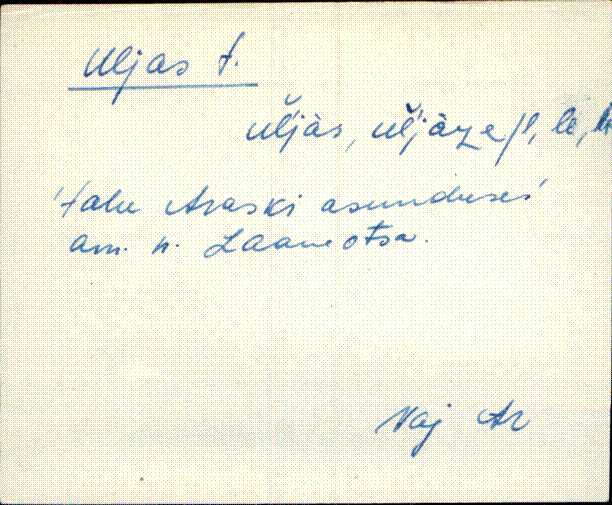 Uljas t.
ul̆jàs, ul̆jàze/l, le,
'talu Araski asunduses'
am. n. Laaneotsa.
Vaj Ar